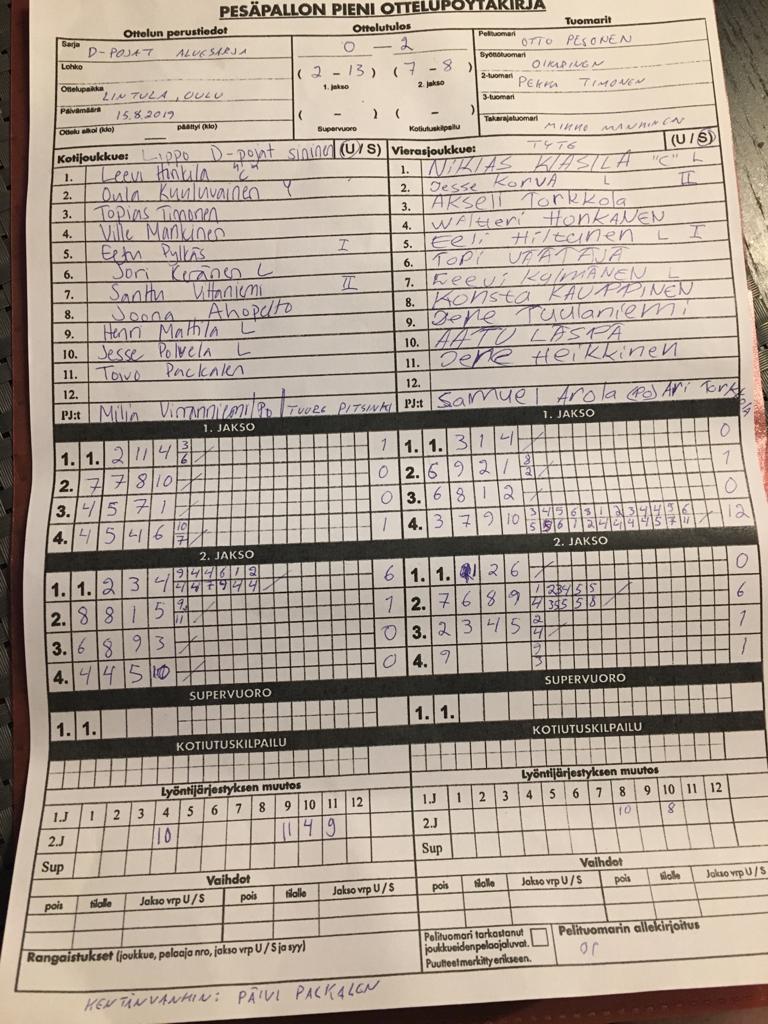 PESÄPALLON PIENI OTTELUPÖYTÄKIRJA
Ottelun perustiedot
Sarja D-POJAT ALUESARJA
Lohko
Ottelupaikka LINTULA, OULU
Päivämäärä 15.8.2019
Ottelu alkoi (klo) päättyi (klo)
Ottelutulos
0 - 2
( 2 - 13 ) ( 7 - 8 )
1. jakso 2. jakso
( - ) ( - )
Supervuoro Kotiutuskilpailu
Tuomarit
Pelituomari OTTO PESONEN
Syöttötuomari
2-tuomari PEKKA TIMONEN
3-tuomari
Takarajatuomari MIKKO MANNINEN
Kotijoukkue: Lippo D-pojat sininen (U / S)
1. Leevi Hintula "C"
2. Oula Kuuluvainen
3. Topias Timonen
4. Ville Mankinen
5. Eetu Pylkäs I
6. Jori Keränen L
7. Santtu Viitaniemi II
8. Joona Ahopelto
9. Henri Mattila L
10. Jesse Polvela L
11. Toivo Packalen
12.
PJ:t Milja /PO / TUURE PITSINKI
Vierasjoukkue: TyTe (U / S)
1. NIKLAS KIASILA "C" L
2. Jesse Korva L II
3. AKSELI Torkkola
4. WALTTERI HONKANEN
5. Eeli Hiltunen L I
6. TOPI VÄÄTÄJÄ
7. Eeevi KylMÄNEN L
8. Konsta KAUPPINEN
9. Jere Tuulaniemi
10. AATU LASPA
11. Jere Heikkinen
12.
PJ:t Samuel Arola (PO) Ari Torkkola
1. JAKSO
1. 1. 2 11 4 3 / 1
6
2. 7 7 8 10 0
3. 4 5 7 1 0
4. 4 5 4 6 10 / 1
7
1. JAKSO
1. 1. 3 1 4 / 0
2. 6 9 2 1 8 / 1
2
3. 6 8 1 2 / 0
4. 3 7 9 10 3 4 5 6 8 1 2 3 4 4 5 6 / 12
5 5 6 1 2 4 4 4 4 5 7 11
2. JAKSO
1. 1. 2 3 4 9 4 4 6 1 2 / 6
4 4 7 9 4 4
2. 8 8 1 5 9 / 1
11
3. 6 8 9 3 / 0
4. 4 4 5 10 0
2. JAKSO
1. 1. 2 6 / 0
2. 7 6 8 9 1 2 3 4 5 5 / 6
4 3 5 5 5 8
3. 2 3 4 5 2 / 1
4
4. 9 9 1
3
SUPERVUORO
1. 1.
SUPERVUORO
1. 1.
KOTIUTUSKILPAILU
KOTIUTUSKILPAILU
Lyöntijärjestyksen muutos
1.J 1 2 3 4 5 6 7 8 9 10 11 12
2.J 10 11 4 9
Sup
Lyöntijärjestyksen muutos
1.J 1 2 3 4 5 6 7 8 9 10 11 12
2.J 10 8
Sup
Vaihdot
pois tilalle Jakso vrp U / S pois tilalle Jakso vrp U / S
Vaihdot
pois tilalle Jakso vrp U / S pois tilalle Jakso vrp U / S
Rangaistukset (joukkue, pelaaja nro, jakso vrp U / S ja syy)
Pelituomari tarkastanut
joukkueidenpelaajaluvat.
Puutteet merkitty erikseen.
Pelituomarin allekirjoitus
OP
KENTÄNVANHIN: PÄIVI PACKALEN